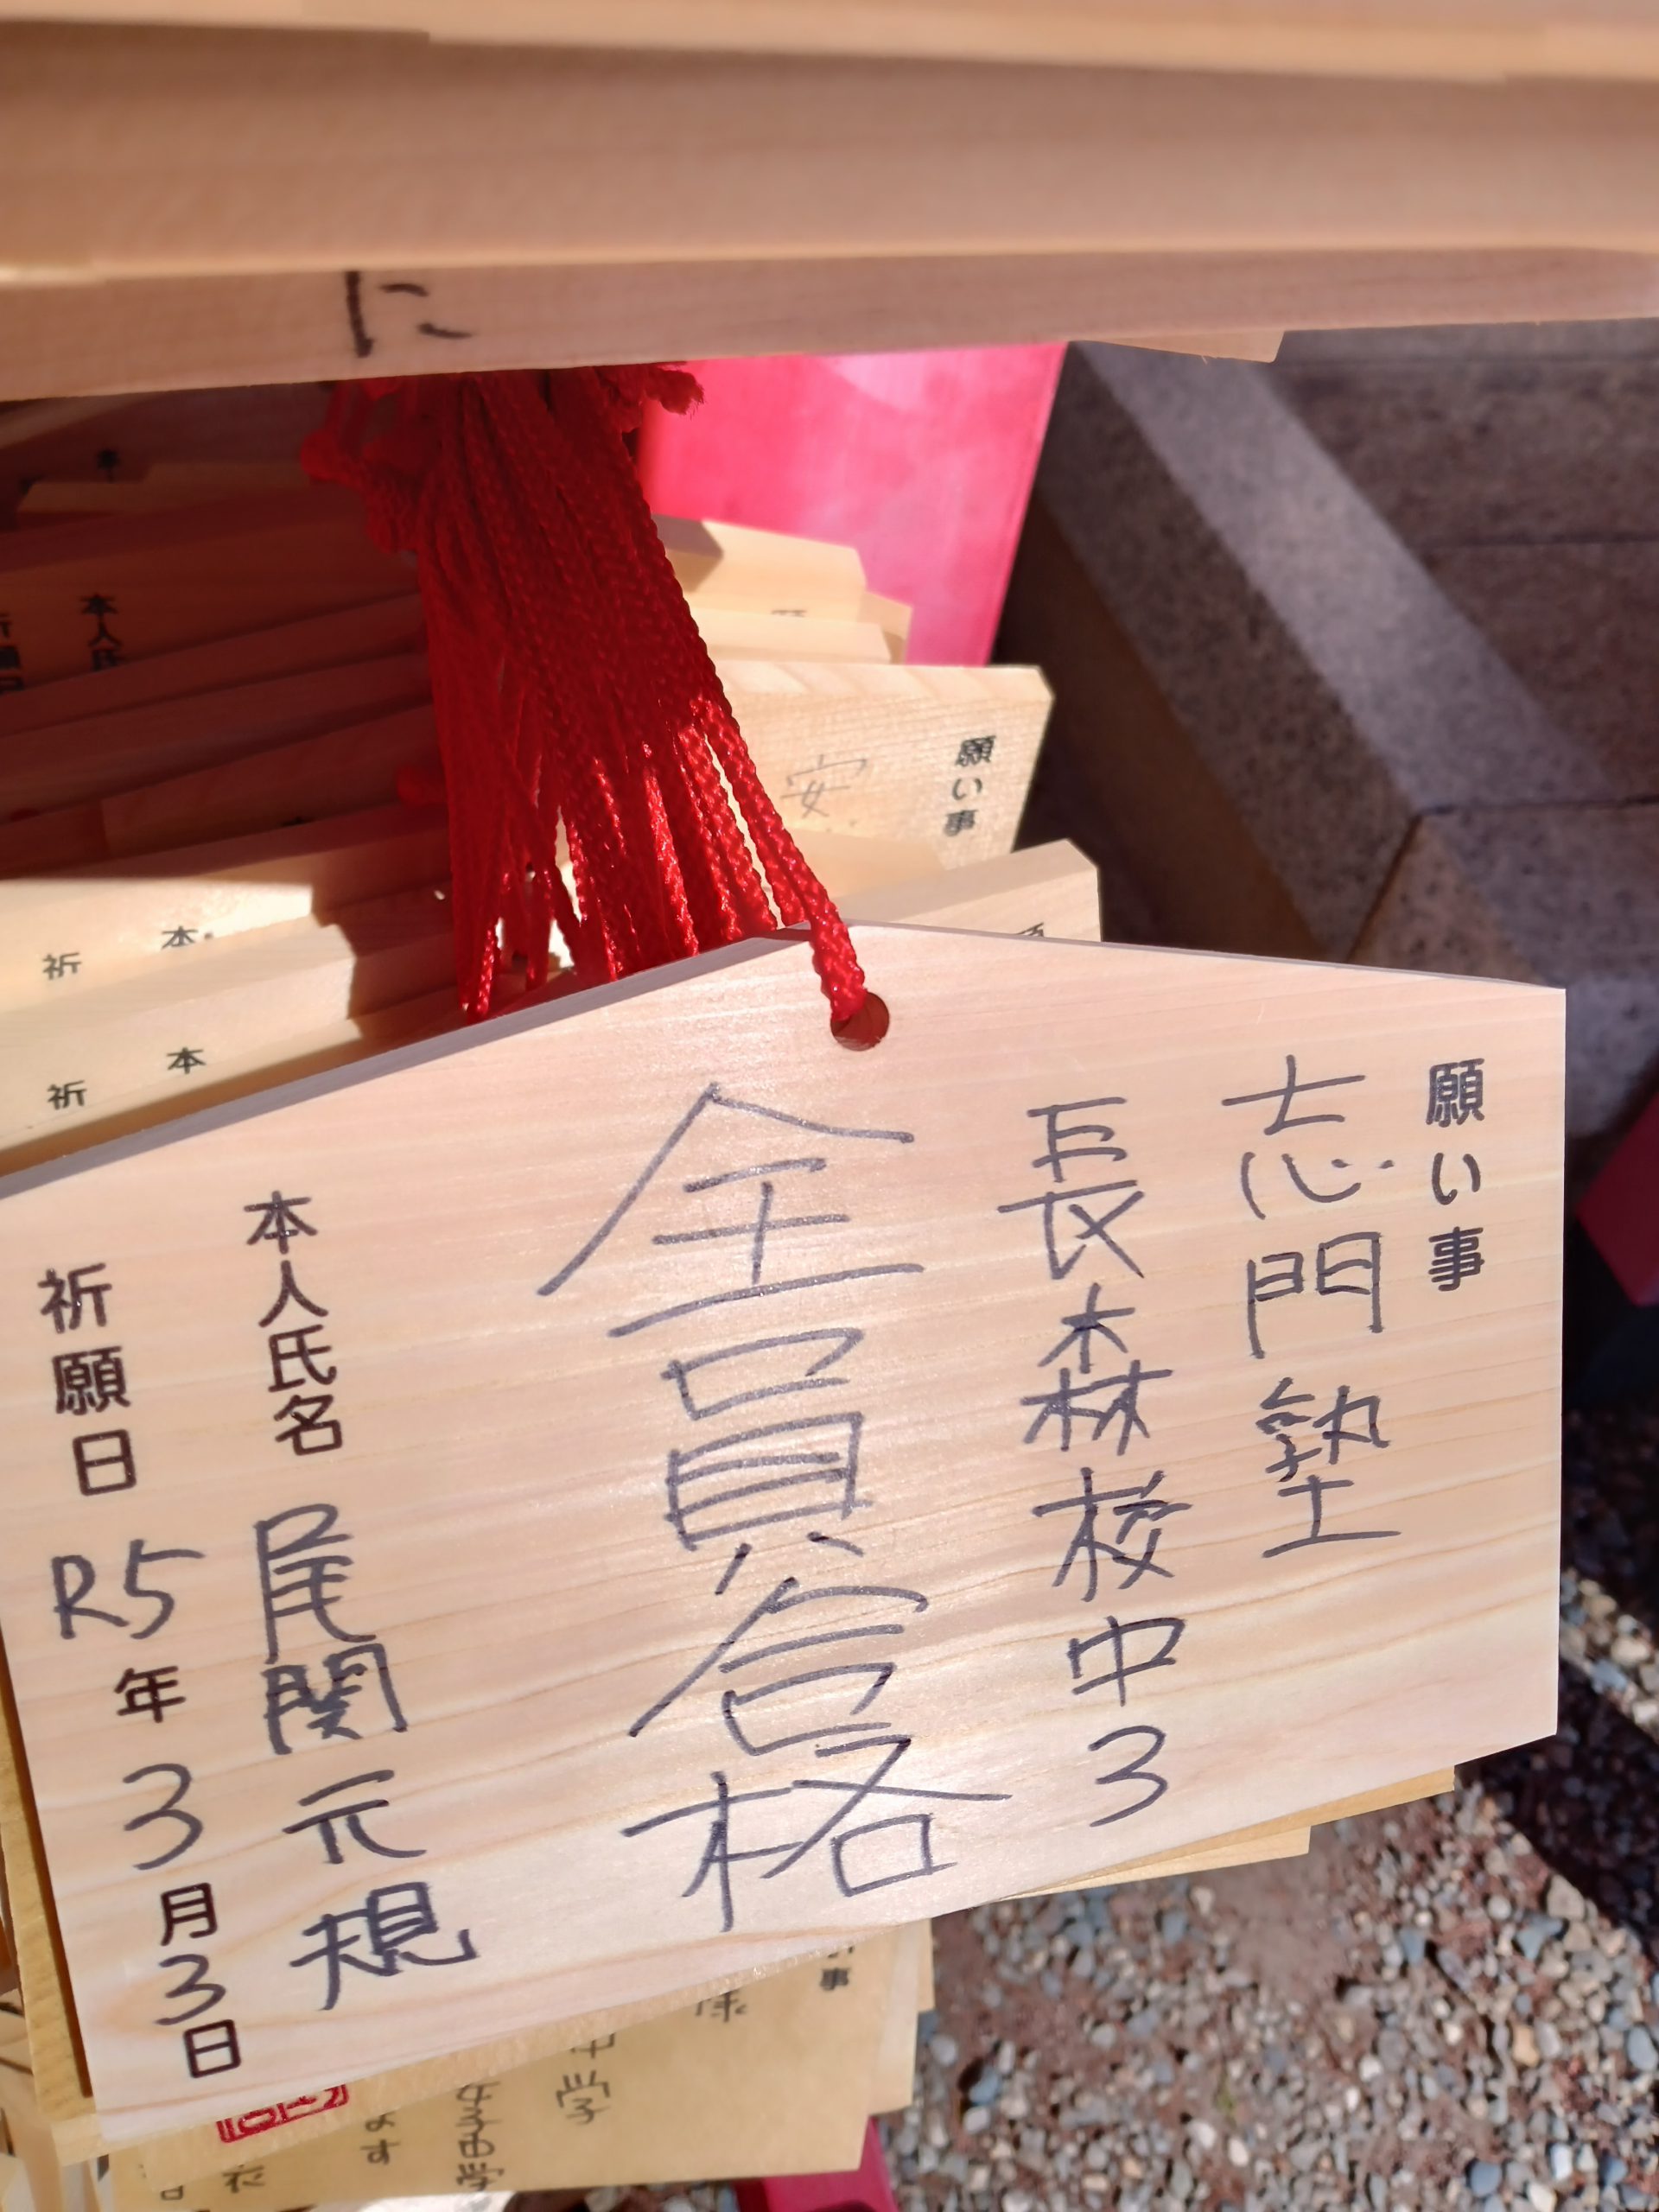 に
本
本人氏
祈願日
願い事
安
本
祈
本
祈
願い事
志門塾
長森校中3
全員合格
本人氏名 尾関元規
祈願日 R5年3月3日
事
中学
ます